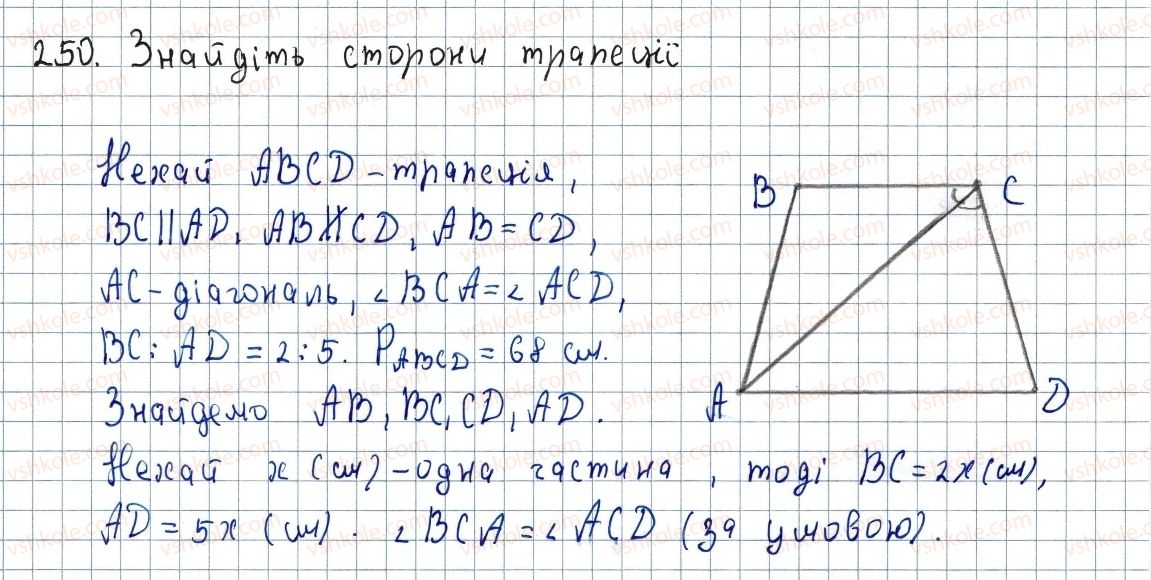 250. Знайдіть сторони трапеції
Нехай ABCD - трапеція,
BC || AD, AB ∦ CD, AB = CD,
AC - діагональ, ∠BCA = ∠ACD,
BC : AD = 2 : 5. PABCD = 68 см.
Знайдемо AB, BC, CD, AD.
Нехай x (см) - одна частина, тоді BC = 2x (см),
AD = 5x (см). ∠BCA = ∠ACD (за умовою).
B C
A D
vshkole.com